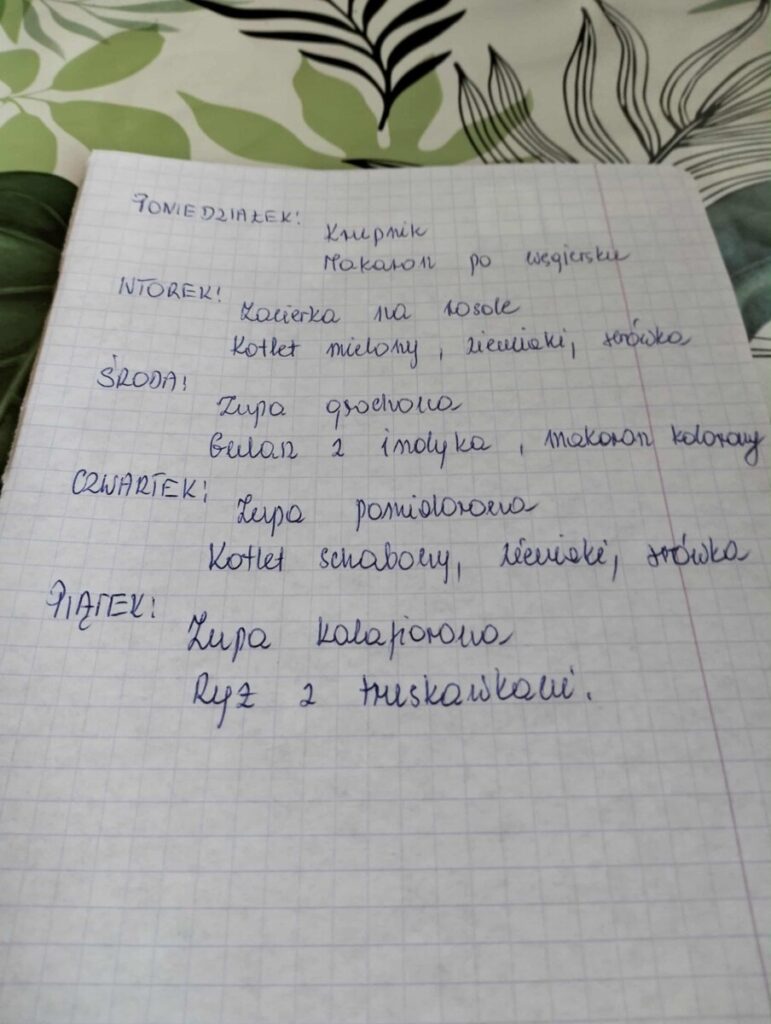 PONIEDZIAŁEK:
Krupnik
Makaron po węgiersku
WTOREK:
Zacierka na rosole
Kotlet mielony, ziemniaki, surówka
ŚRODA:
Zupa grochowa
Gulasz z indyka, makaron kolorowy
CZWARTEK:
Zupa pomidorowa
Kotlet schabowy, ziemniaki, surówka
PIĄTEK:
Zupa kalafiorowa
Ryż z truskawkami.